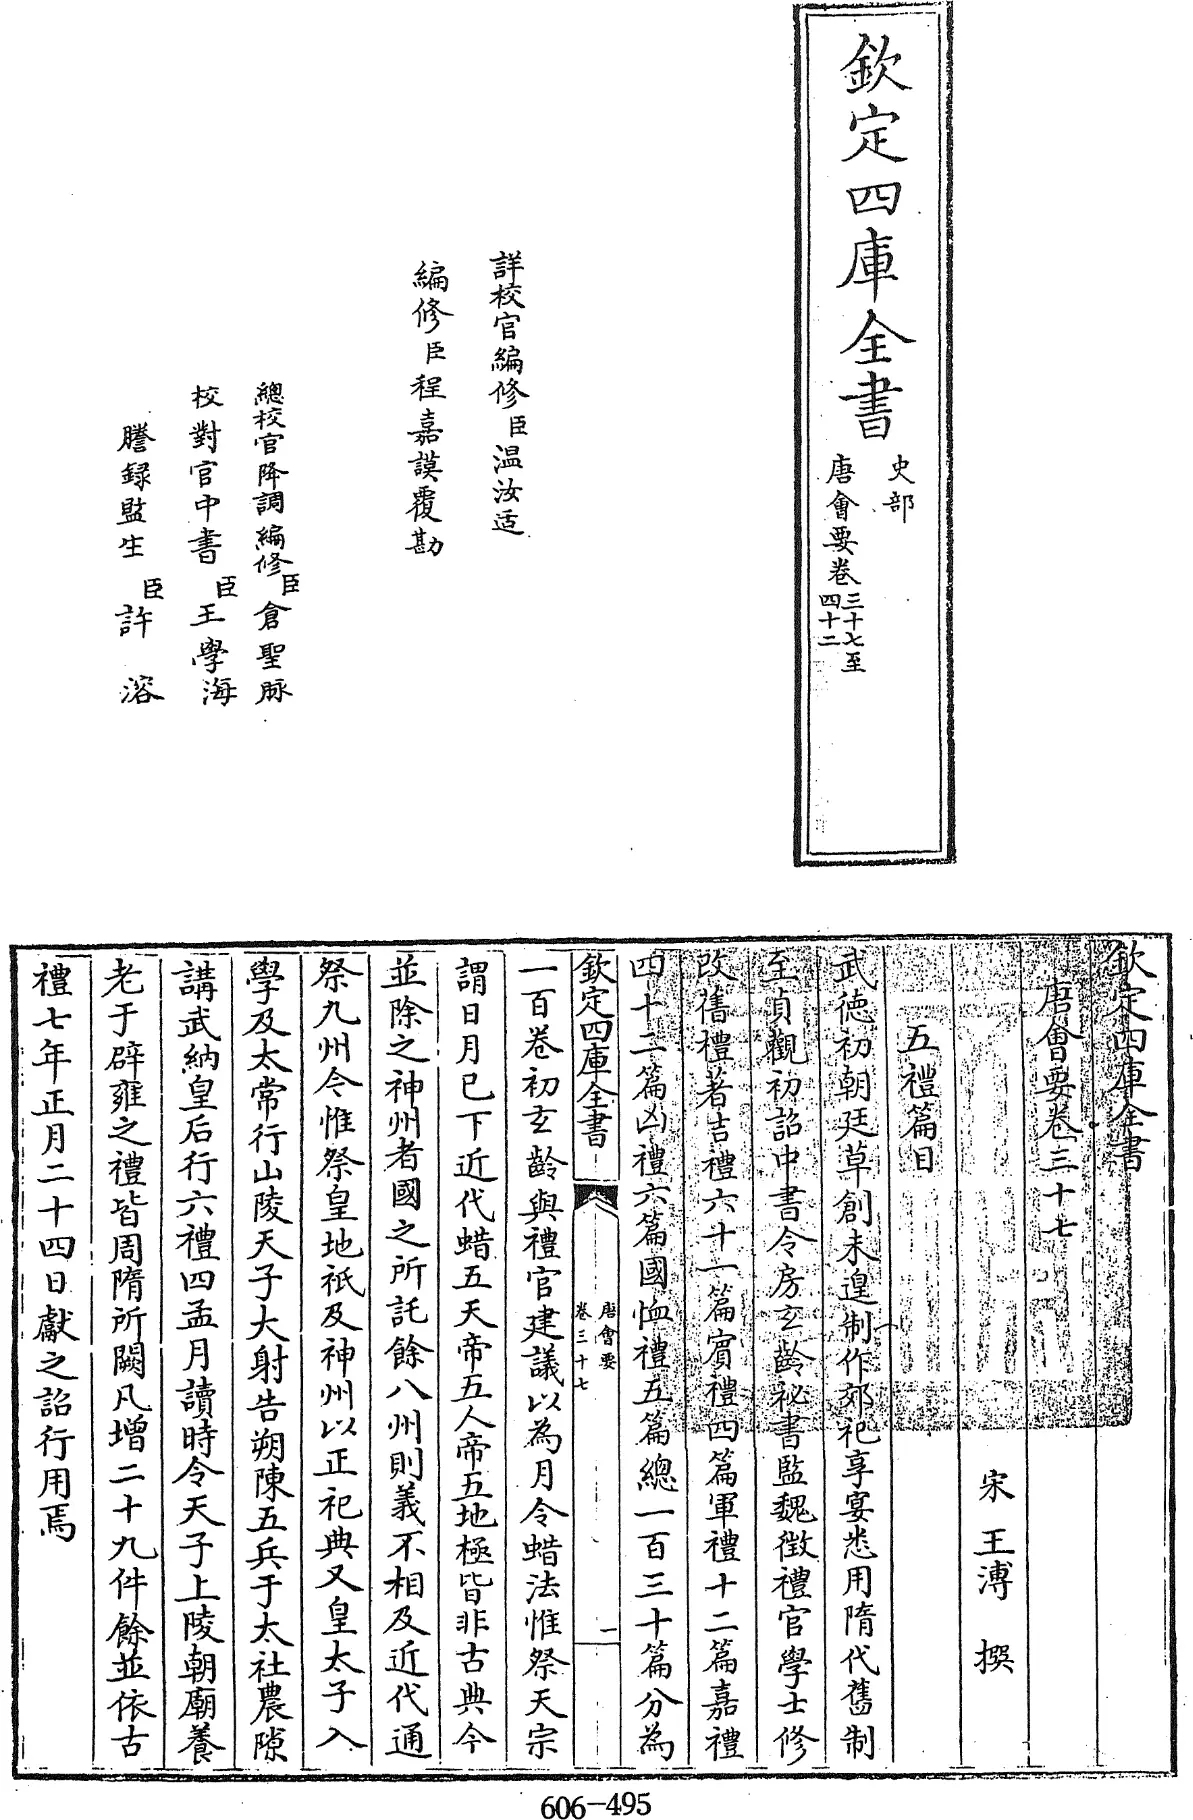 欽定四庫全書
史部
唐會要卷三十七至
四十二
詳校官編修臣温汝适
編修臣程嘉謨覆勘
總校官降調編修臣倉聖脈
校對官中書臣王學海
謄録監生臣許溶
欽定四庫全書
唐會要卷三十七
宋 王溥 撰
五禮篇目
武德初朝廷草創未遑制作郊祀享宴悉用隋代舊制
至貞觀初詔中書令房玄齡祕書監魏徵禮官學士修
改舊禮著吉禮六十一篇賓禮四篇軍禮十二篇嘉禮
四十二篇凶禮六篇國恤禮五篇總一百三十篇分為
欽定四庫全書
唐會要
卷三十七
一
一百卷初玄齡與禮官建議以為月令蜡法惟祭天宗
謂日月已下近代蜡五天帝五人帝五地極皆非古典今
並除之神州者國之所託餘八州則義不相及近代通
祭九州今惟祭皇地祇及神州以正祀典又皇太子入
學及太常行山陵天子大射告朔陳五兵于太社農隙
講武納皇后行六禮四孟月讀時令天子上陵朝廟養
老于辟雍之禮皆周隋所闕凡增二十九件餘並依古
禮七年正月二十四日獻之詔行用焉
606-495